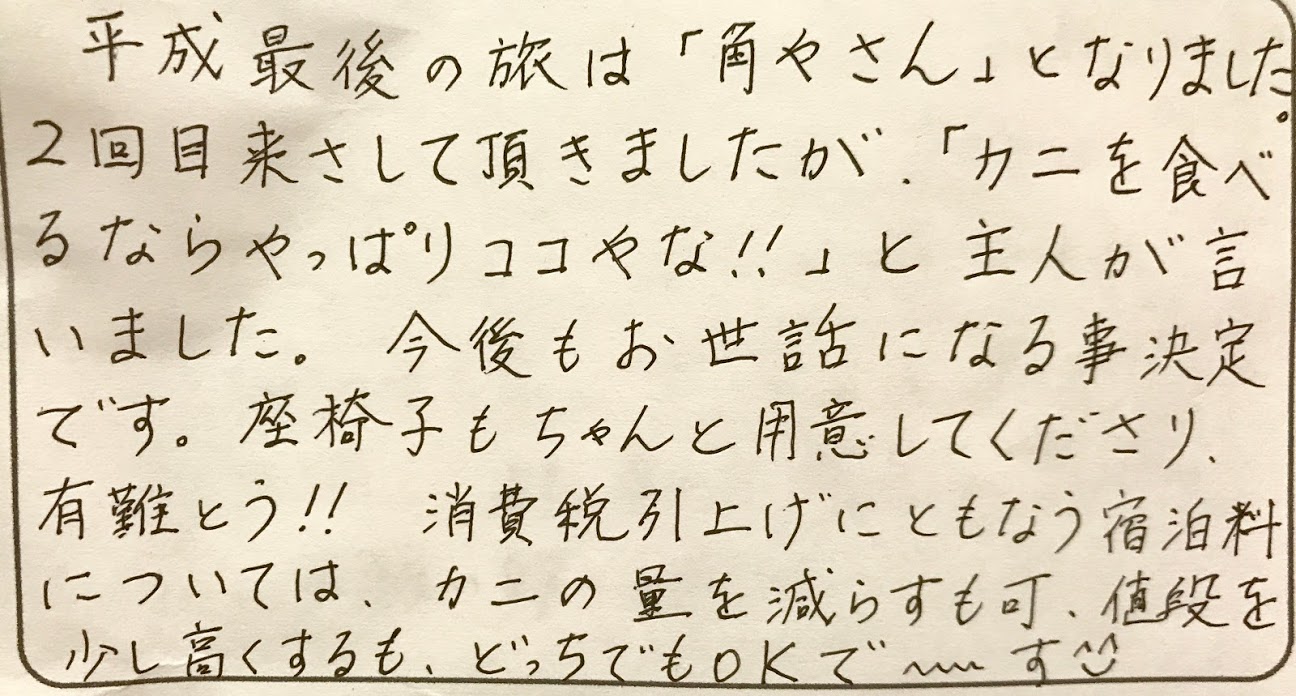 平成最後の旅は「角やさん」となりました。
2回目来さして頂きましたが、「カニを食べ
るならやっぱりココやな!!」と主人が言
いました。 今後もお世話になる事決定
です。座椅子もちゃんと用意してくださり、
有難とう!! 消費税引上げにともなう宿泊料
については、カニの量を減らすも可、値段を
少し高くするも、どっちでもOKで〜〜す